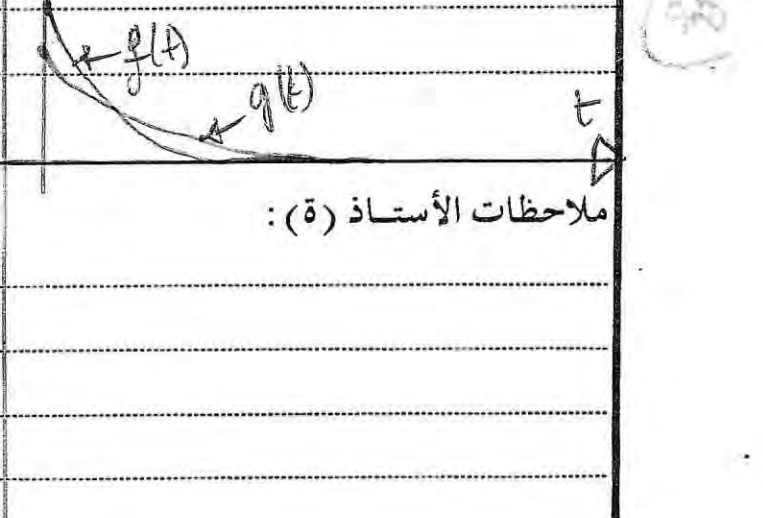 f(t)
g(t)
t
ملاحظات الأستاذ (ة) :